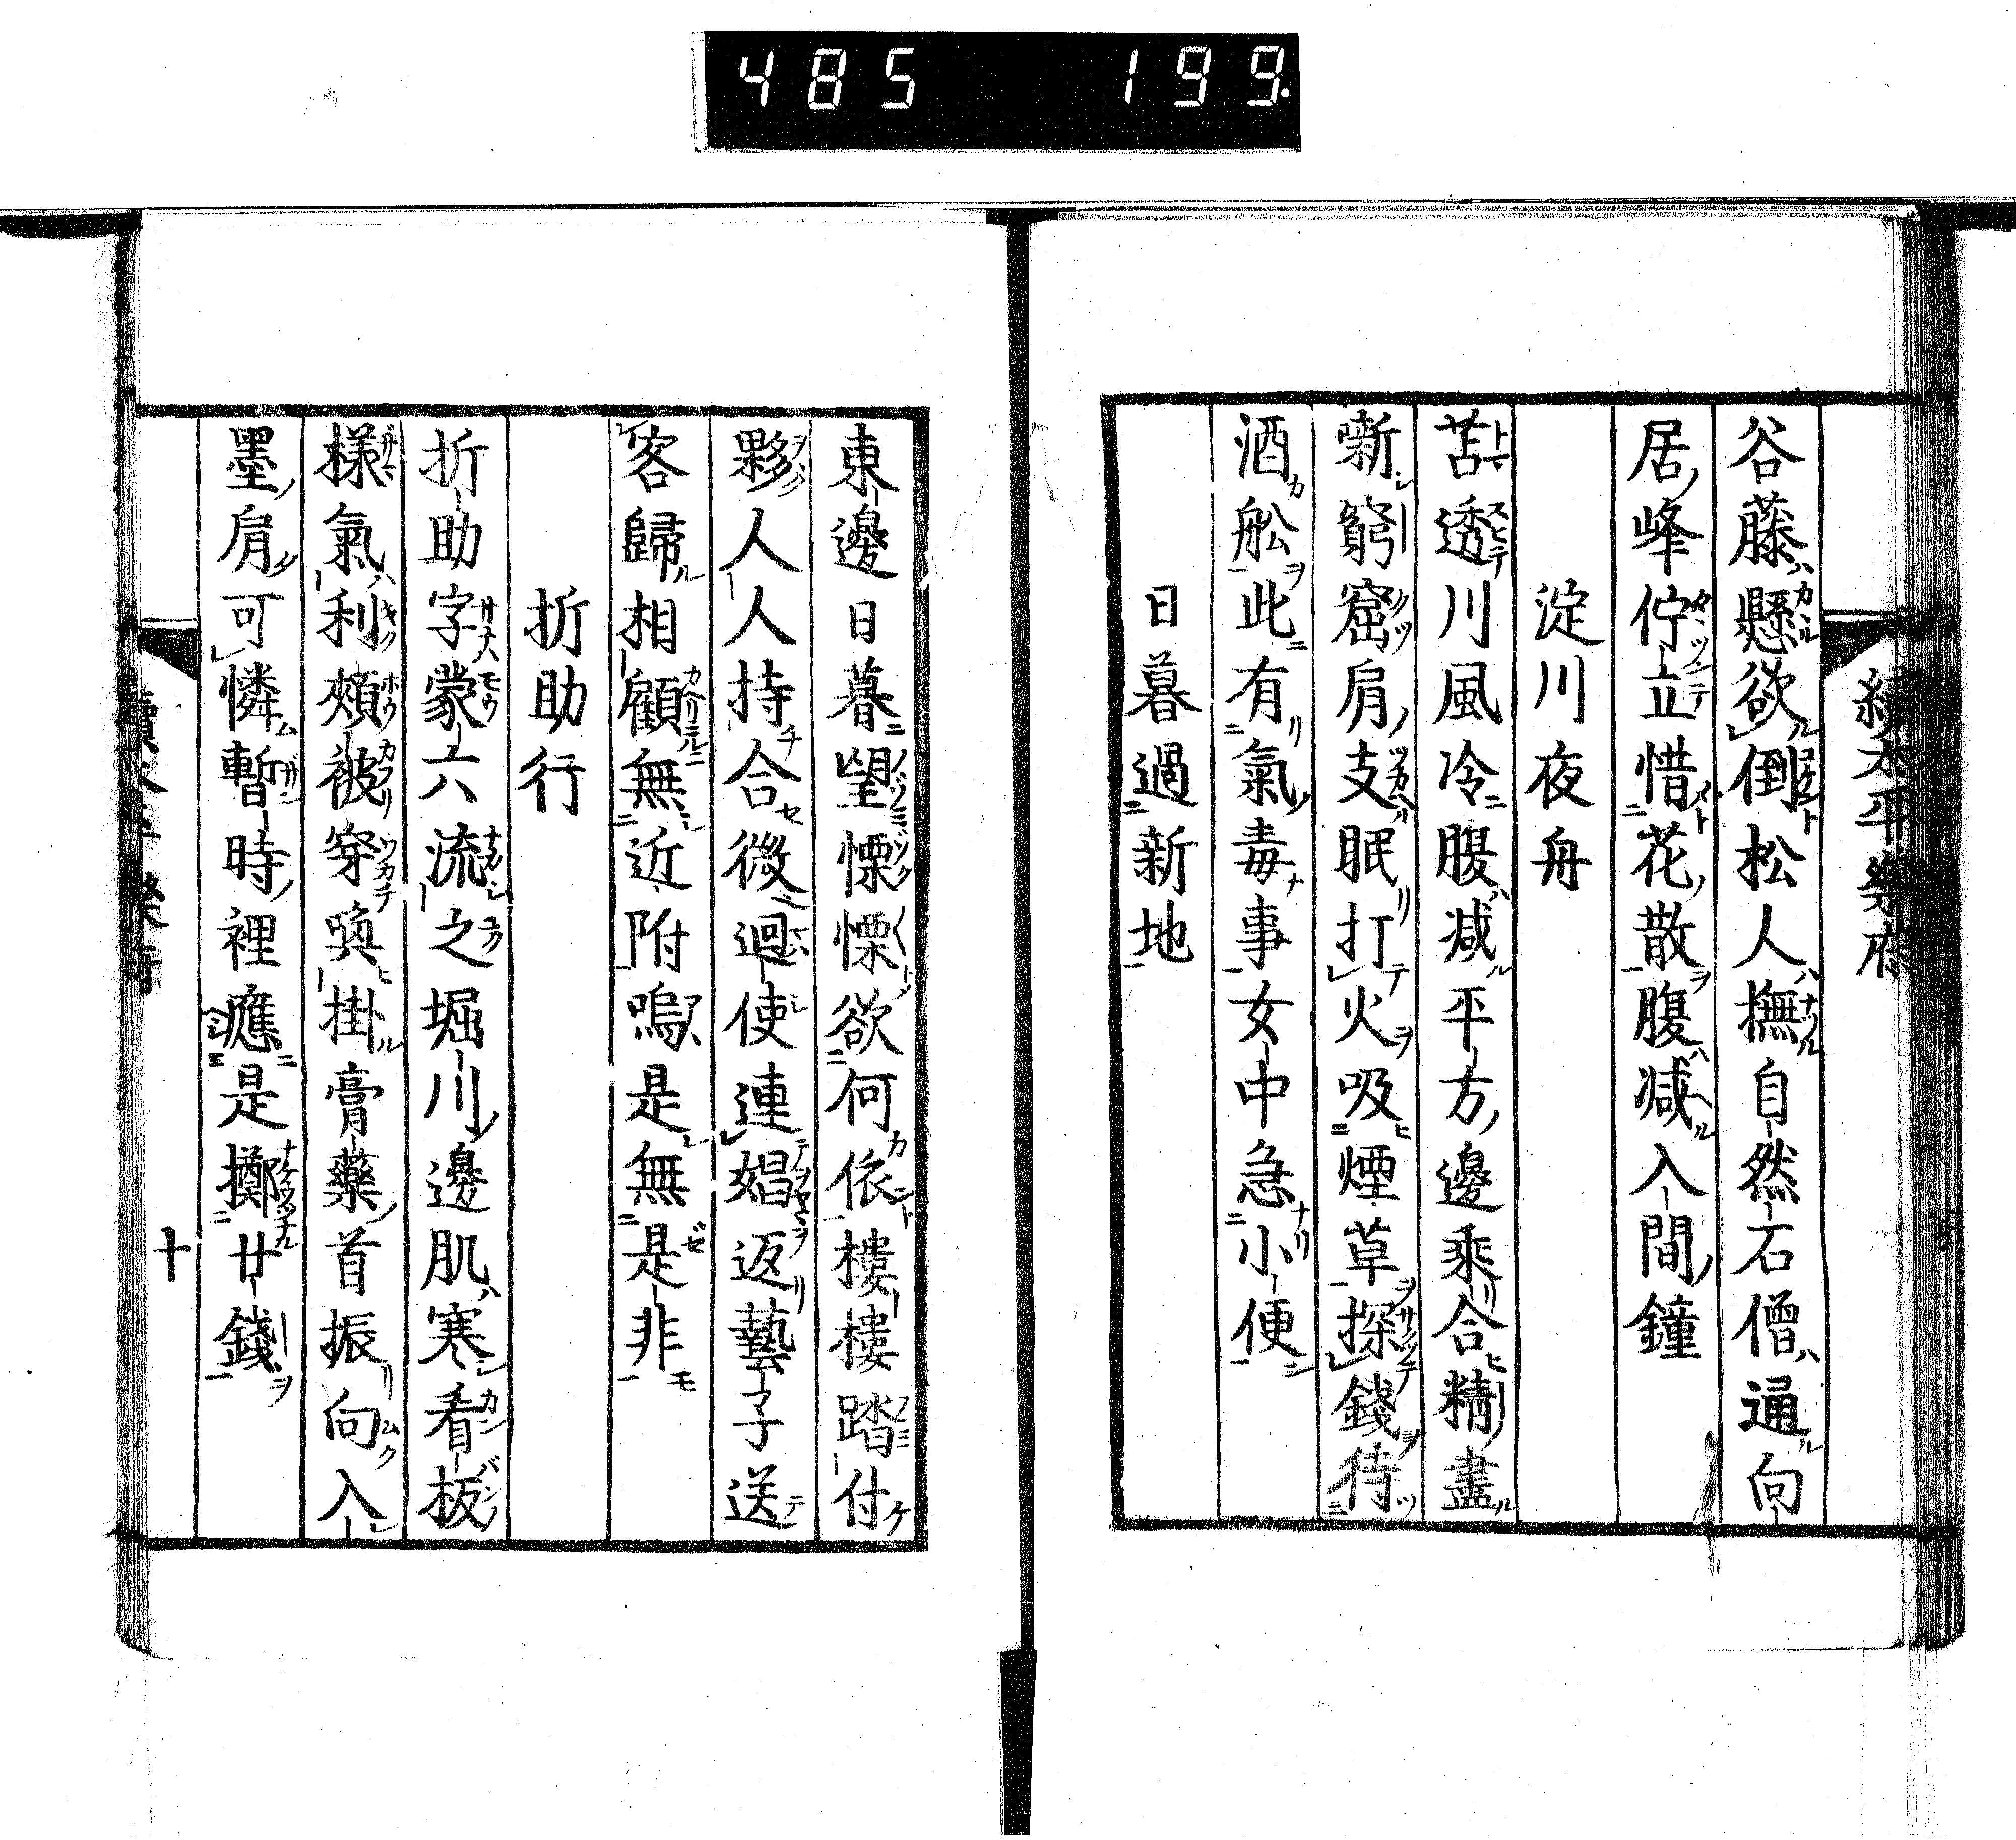 485 199.
續太平樂府
谷藤懸欲倒松人撫自然石僧通向
居峰佇立惜花散腹減入間鐘
淀川夜舟
苫透川風冷腹減平方邊乘合精盡
噺窮窟肩支眠打火吸煙草探錢待
酒舩此有氣毒事女中急小便
日暮過新地
東邊日暮望慄慄欲何依樓樓踏付
夥人人持合微迴使連娼返藝子送
客歸相顧無近附嗚是無是非
折助行
折助字蒙六流之堀川邊肌寒看板
樣氣利頰被穿喚掛膏藥首振向入
墨肩可憐暫時裡應是擲廿錢
十